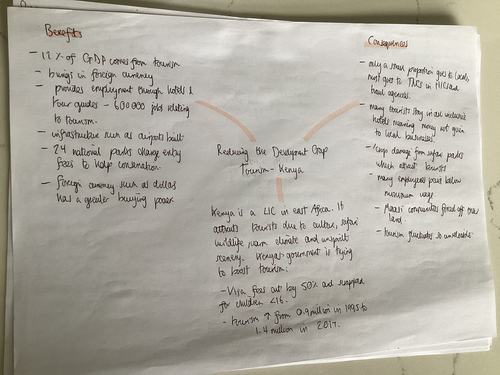 Benefits
- 12% of GDP comes from tourism
- brings in foreign currency
- provides employment through hotels &
tour guides - 600000 jobs relating
to tourism.
- infrastructure such as airports built
- 24 national parks charge entry
fees to help conservation.
- Foreign currency such as dollars
has a greater buying power.
Reducing the Development Gap
Tourism - Kenya
Kenya is a LIC in east Africa. It
attracts tourists due to culture, safari
wildlife, warm climate and unspoilt
scenery. Kenya's government is trying
to boost tourism:
- Visa fees cut by 50% and scrapped
for children <16.
- tourism ↑ from 0.9 million in 1995 to
1.4 million in 2017.
Consequences
- only a small proportion goes to locals,
most goes to TNCs in HICs and
travel agencies.
- many tourists stay in all inclusive
hotels meaning money not given
to local businesses
- damage from safari parks
which attract tourists
- many employees paid below
minimum wage.
- Maasai communities forced off their
land.
- tourism fluctuates so unreliable.